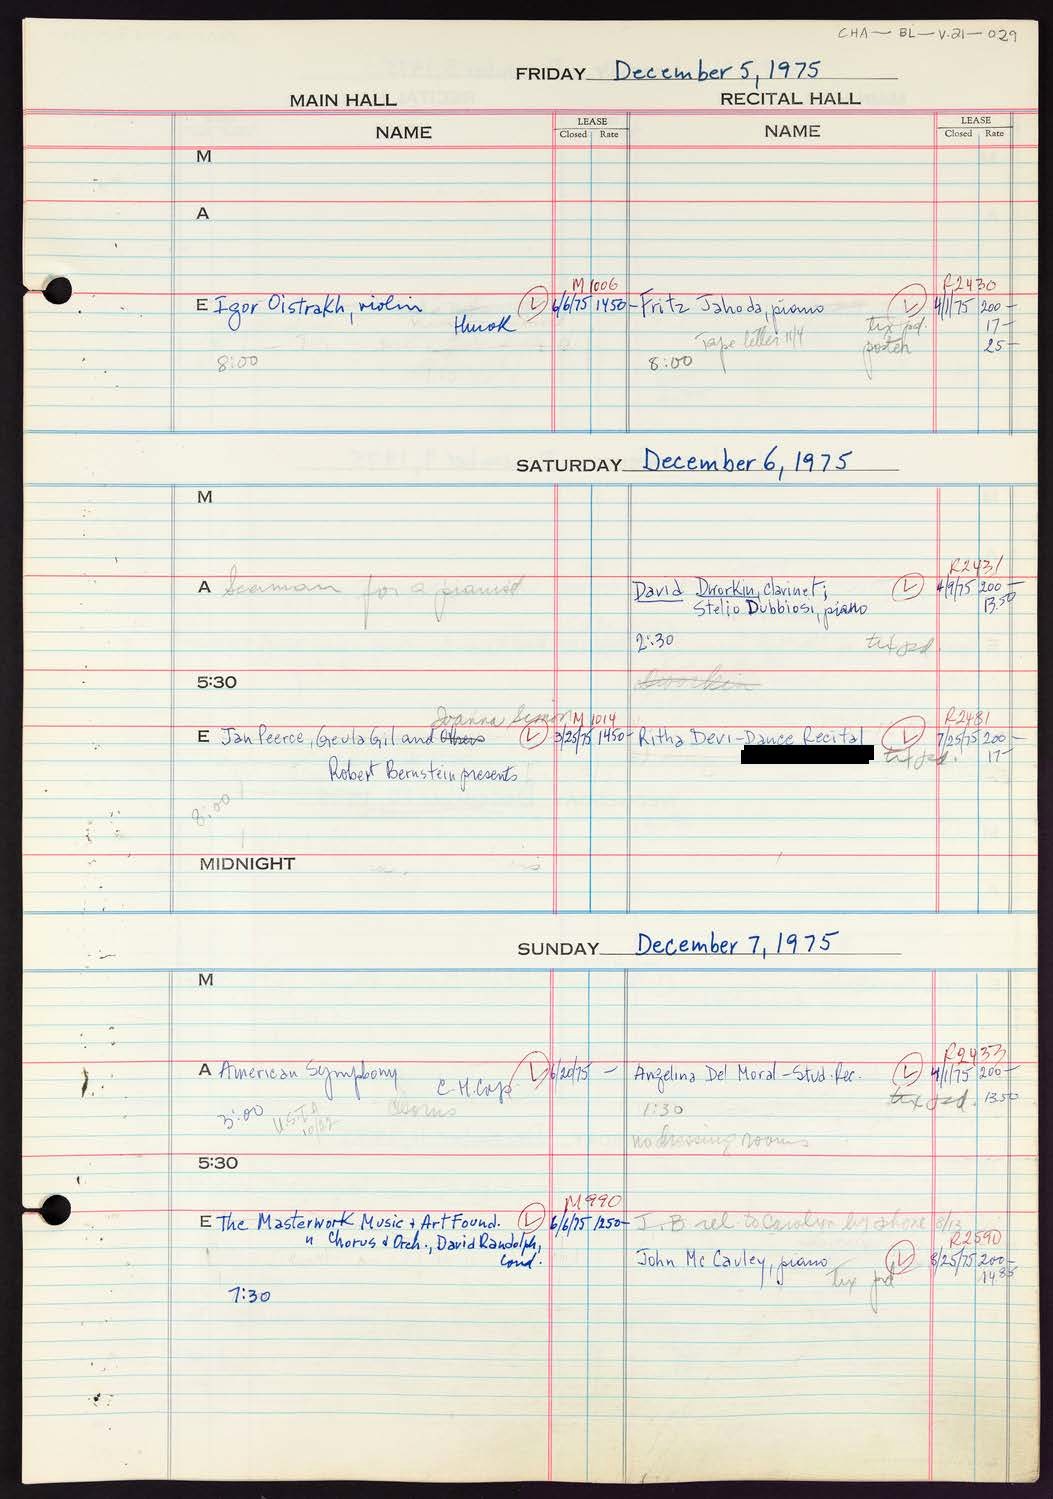 CHA-BL-V.21-029
FRIDAY December 5, 1975
MAIN HALL RECITAL HALL
NAME LEASE Closed Rate NAME LEASE Closed Rate
M
A
M 1006 R2430
E Igor Oistrakh, violin L 6/6/75 1450- Fritz Jahoda, piano L 4/1/75 200-
Hurok tix pd. 17-
Tape letter 11/4 poster 25-
8:00 8:00
SATURDAY December 6, 1975
M
R2431
A Seaman for a pianist David Dworkin, clarinet; L 4/9/75 200-
Stelio Dubbiosi, piano 13.50
2:30 tix pd.
5:30 Dworkin
Joanna Simon M 1014 R2481
E Jan Peerce, Geula Gil and Others L 3/25/75 1450- Ritha Devi-Dance Recital L 7/25/75 200-
tix pd. 17-
Robert Bernstein presents
8:00
MIDNIGHT
SUNDAY December 7, 1975
M
R2433
A American Symphony L 6/20/75 - Angelina Del Moral-Stud. Rec. L 4/1/75 200-
C.H. Corp tix pd. 13.50
3:00 1:30
no dressing rooms
5:30
M990
E The Masterwork Music + Art Found. L 6/6/75 1250- J.B rel. to Carolyn by phone 8/13
" Chorus & Orch., David Randolph, R2590
cond. John McCauley, piano L 8/25/75 200-
tix pd
7:30